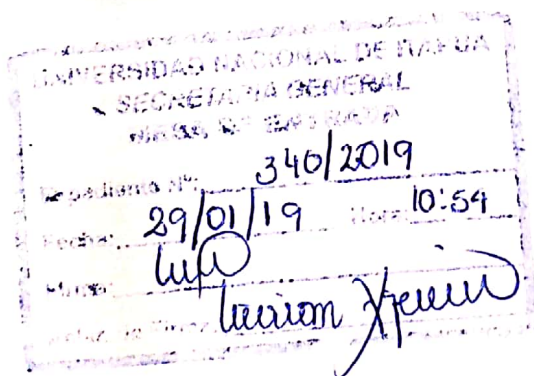 UNIVERSIDAD NACIONAL DE ITAPUA
SECRETARIA GENERAL
MESA DE ENTRADA
Expediente Nº: 340/2019
Fecha: 29/01/19 Hora: 10:54
Firma: